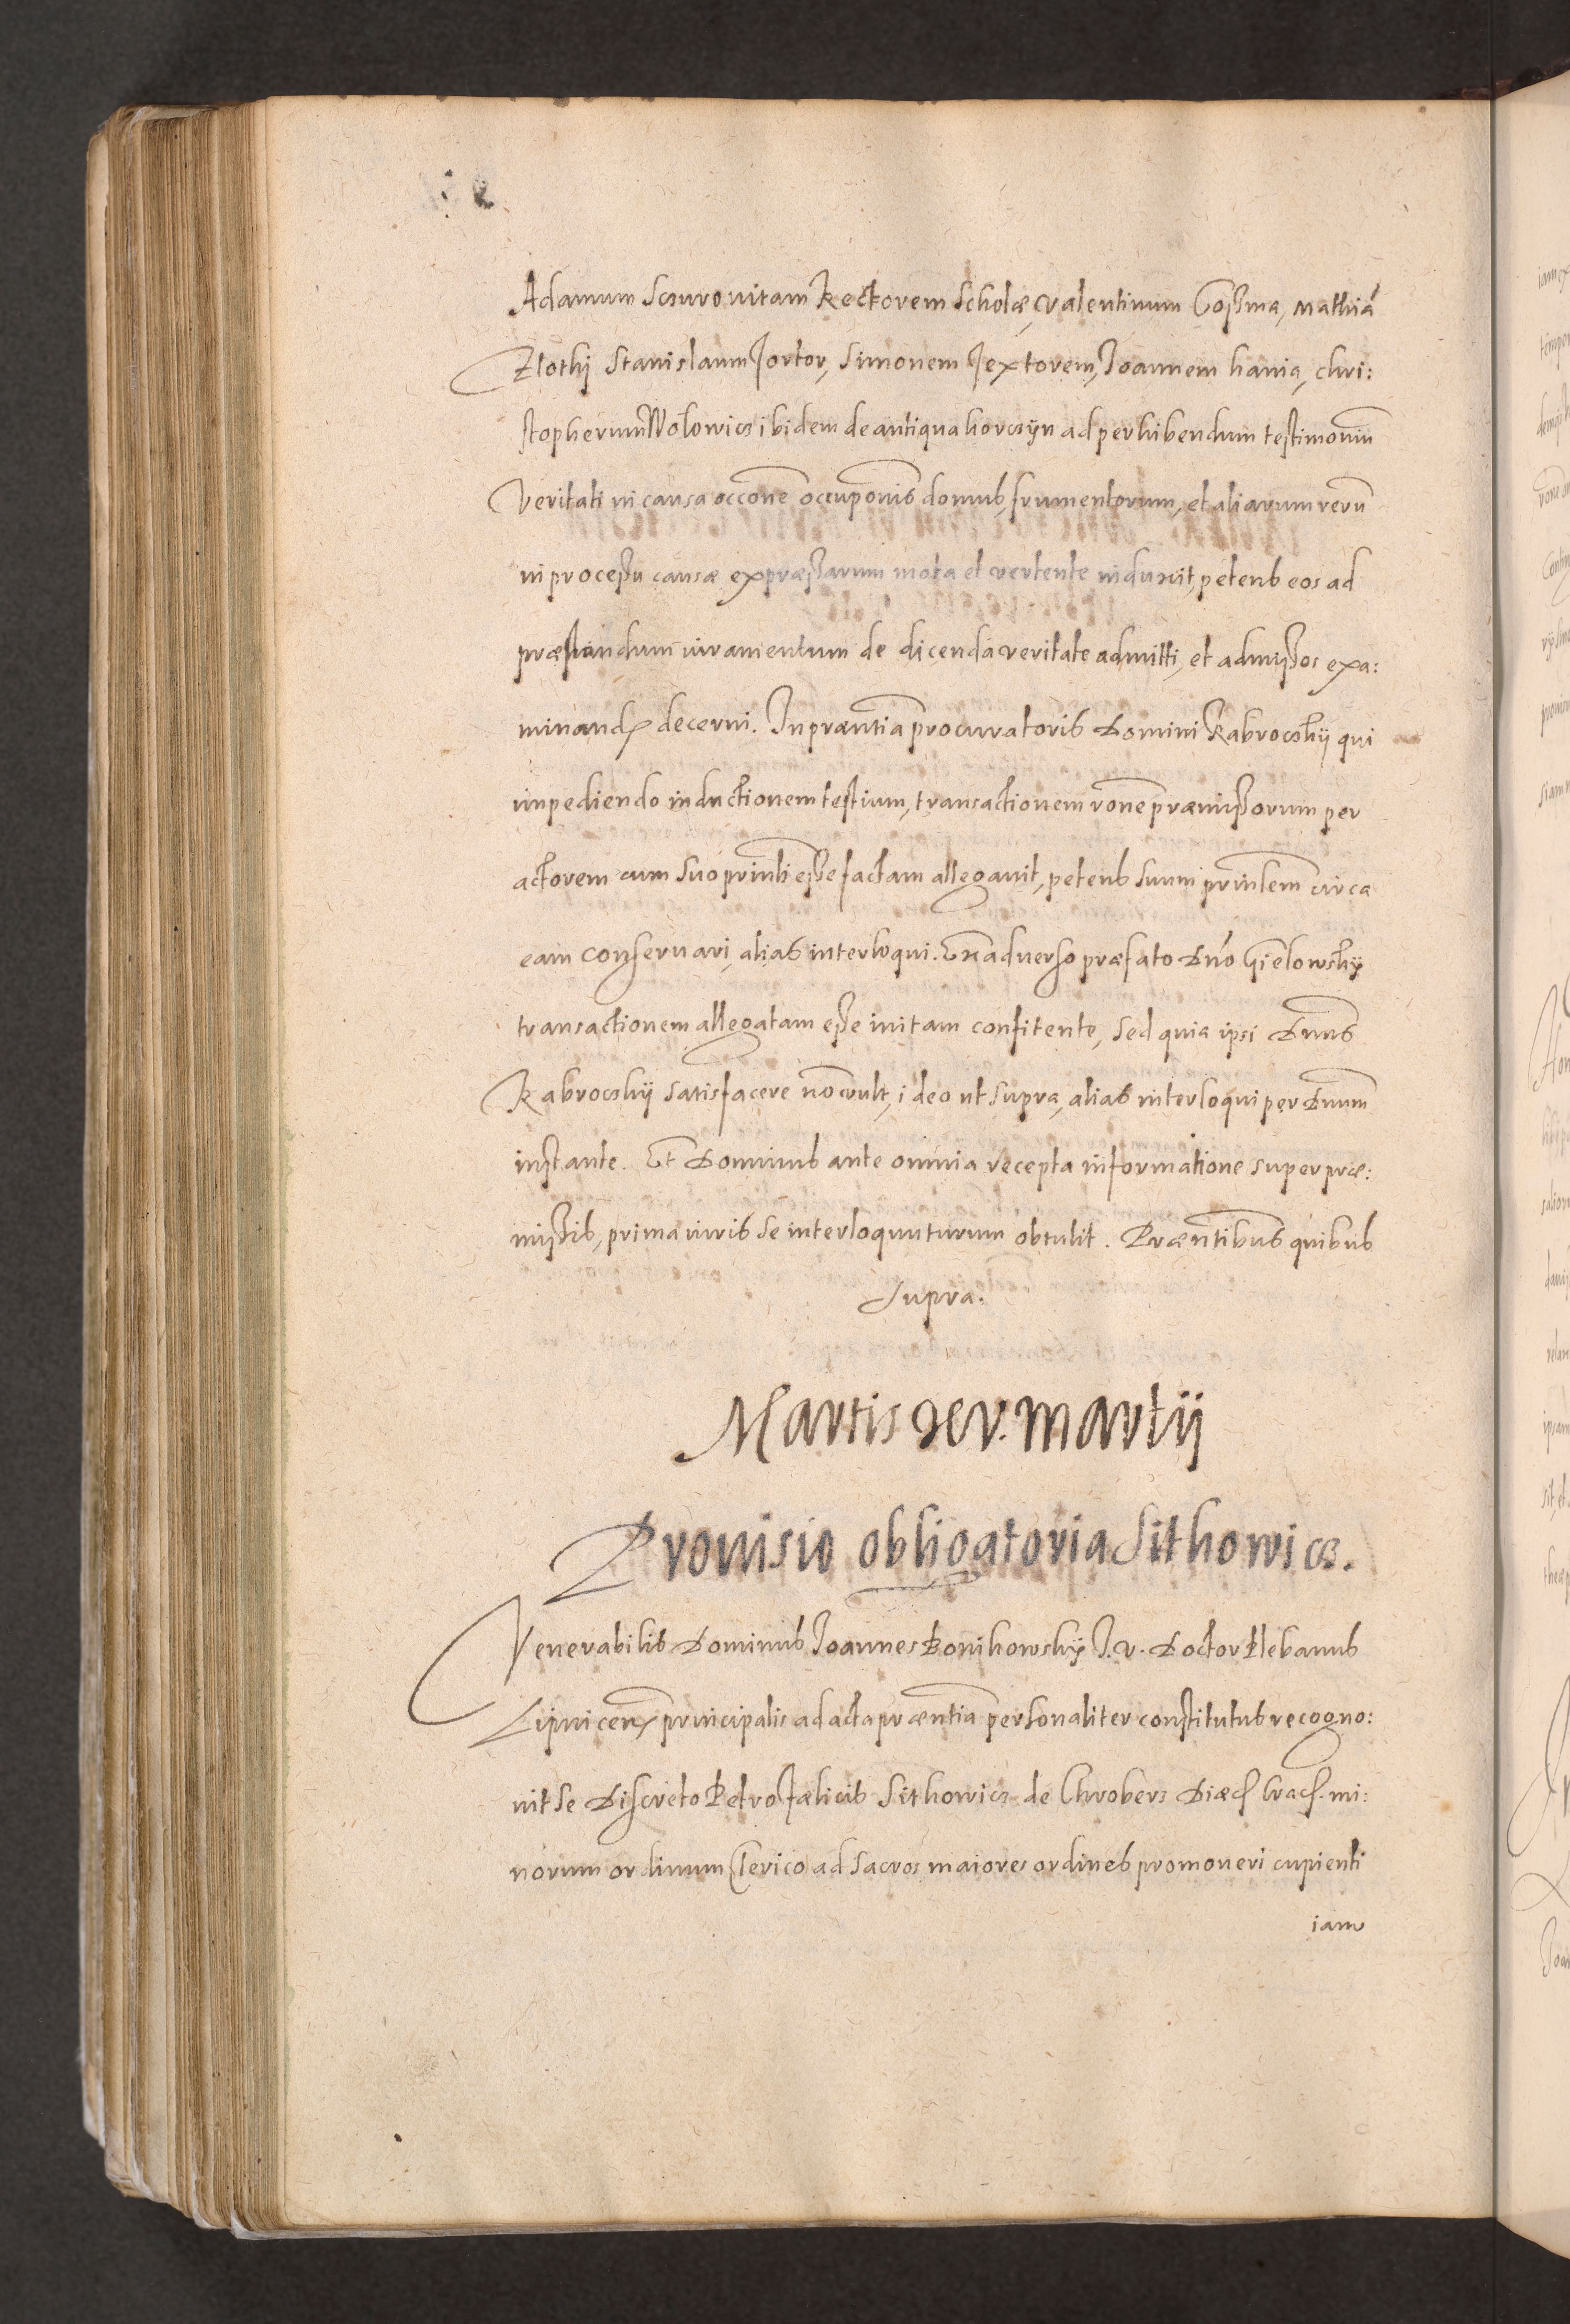 Adamum Sczurouitam Rectorem Scholæ, Valentinum Cosßma, Mathiā
Zlothj Stanislaum Jortor, Simonem Textorem, Joannem hania, chri:
stopherum Wolowicz ibidem de antiqua horczijn ad perhibendum testimoniū
Veritati in causa occōne occupōnis domus, frumentorum, et aliarum rerū
in proceßu causæ expræßarum mota et vertente induxit, petens eos ad
præstandum iuramentum de dicenda veritate admitti, et admißos exa:
minand. decerni. In præntia procuratoris Domini Kabroczkij qui
impediendo inductionem testium, transactionem rōne præmißorum per
actorem cum suo prinli eße factam allegauit, petens suum prinlem circa
eam conseruari, alias interloqui. Ex aduerso præfato Dno Gielowskij
transactionem allegatam eße initam confitente, sed quia ipsi Dnus
Kabroczkij satisfacere nō vult, ideo ut supra, alias interloqui per Dnum
instante. Et Dominus ante omnia recepta informatione super præ:
mißis, prima iuris se interloquuturum obtulit. Præntibus quibus
supra.
Martis xv. Martij
Prouisio obligatoria Sithowicz.
Venerabilis Dominus Joannes Bonikowskij J. V. Doctor Plebanus
Lipnicen. principalis ad acta præntia personaliter constitutus recogno:
uit se Discreto Petro Fælicis Sithowicz de Chroberz Diæc. Crac. mi:
norum ordinum Clerico ad sacros maiores ordines promoueri cupienti
iam